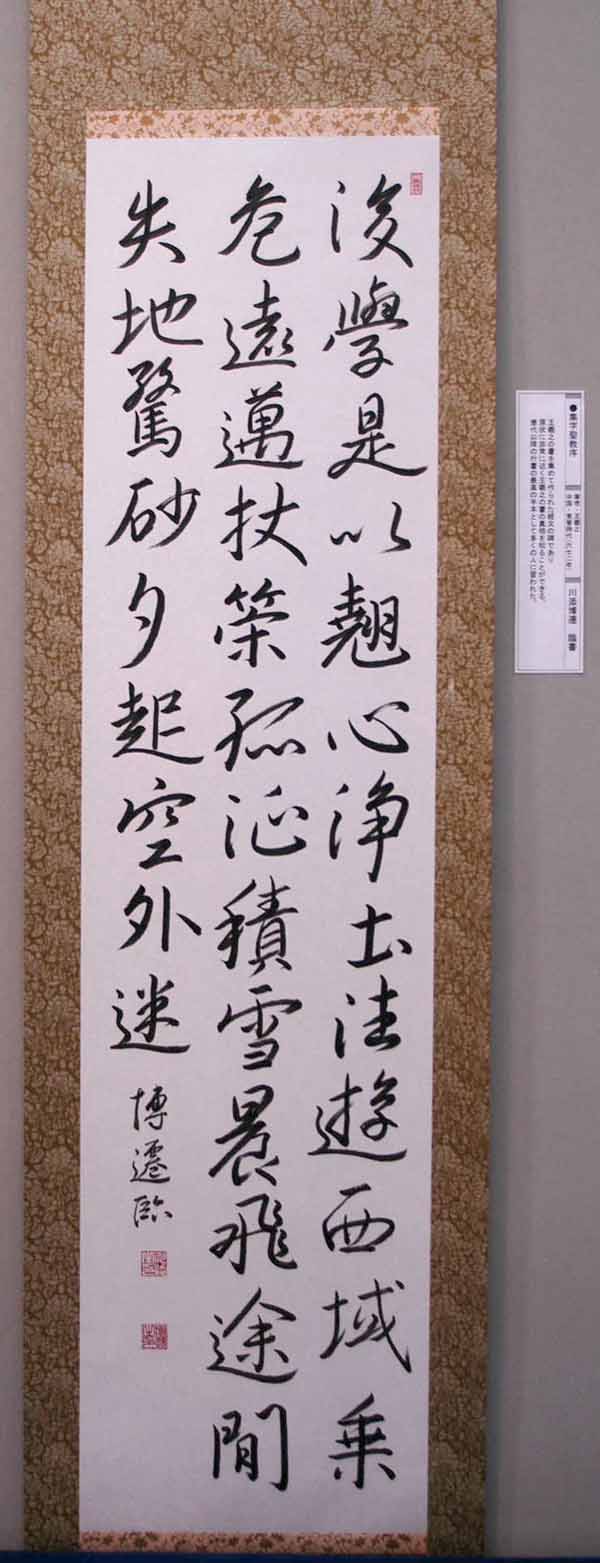 後學是以翹心淨土往遊西域乗
危遠邁杖策孤征積雪晨飛途間
失地驚砂夕起空外迷 博遷臨
●集字聖教序
川添博遷 臨書
王羲之の書を集めて作られた経文の碑であり
原状に非常に近く王羲之の書の真相を知ることができる。
唐代以降の行書の最高の手本として多くの人に習われた。